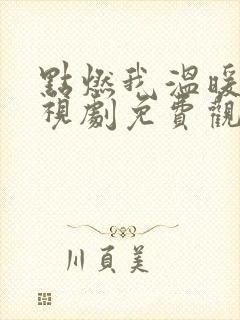 點燃我溫暖
視劇免費觀
川頁美